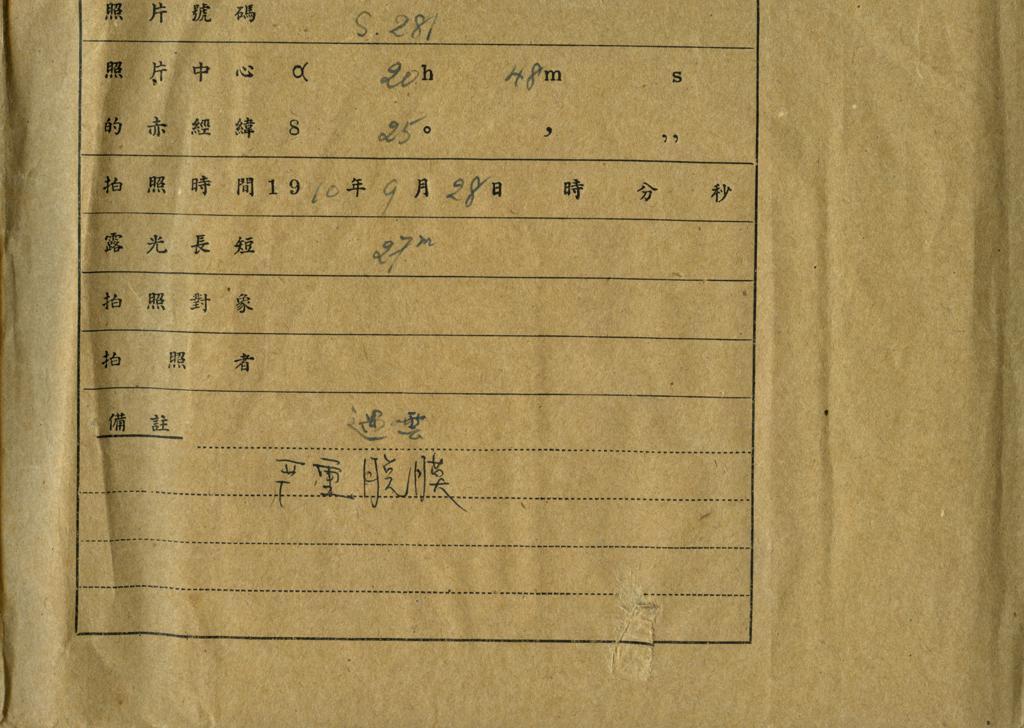 照片號碼 S.281
照片中心 α 20h 48m s
的赤經緯 δ 25° ′ ″
拍照時間 1910年9月28日 時 分 秒
露光長短 27m
拍照對象
拍照者
備註 過雲
严重脱膜